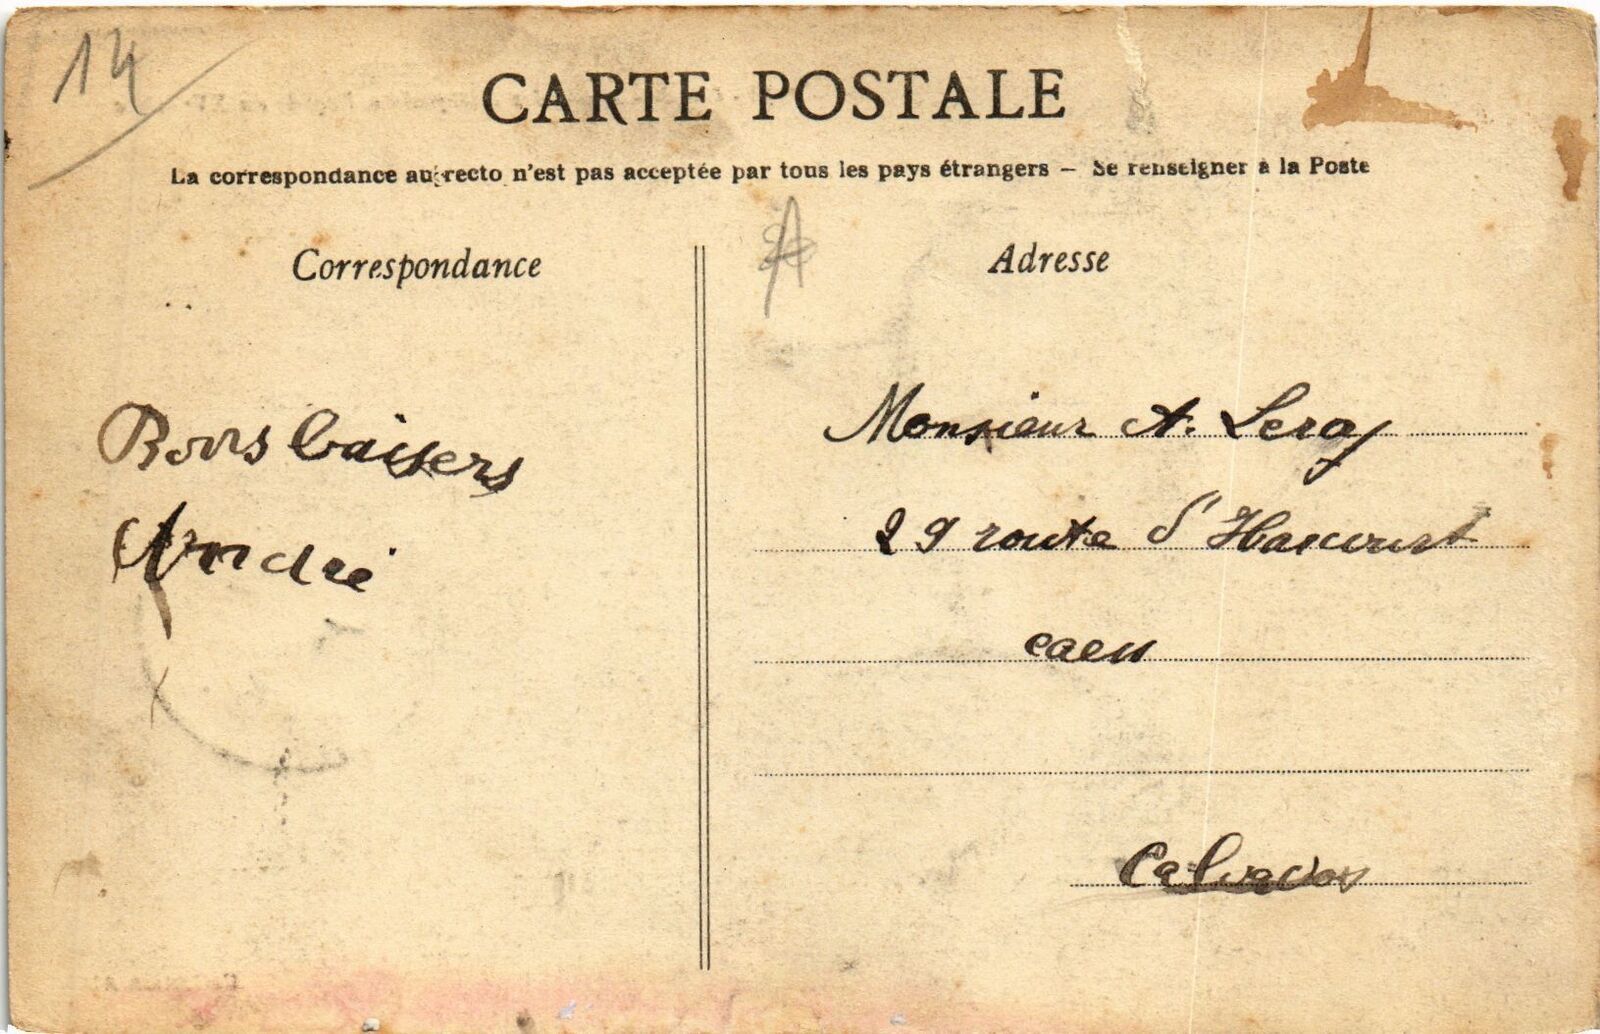 14
CARTE POSTALE
La correspondance au recto n'est pas acceptée par tous les pays étrangers – Se renseigner à la Poste
Correspondance
Bons baisers
André
A
Adresse
Monsieur A. Leroy
29 route d'Harcourt
Caen
Calvados